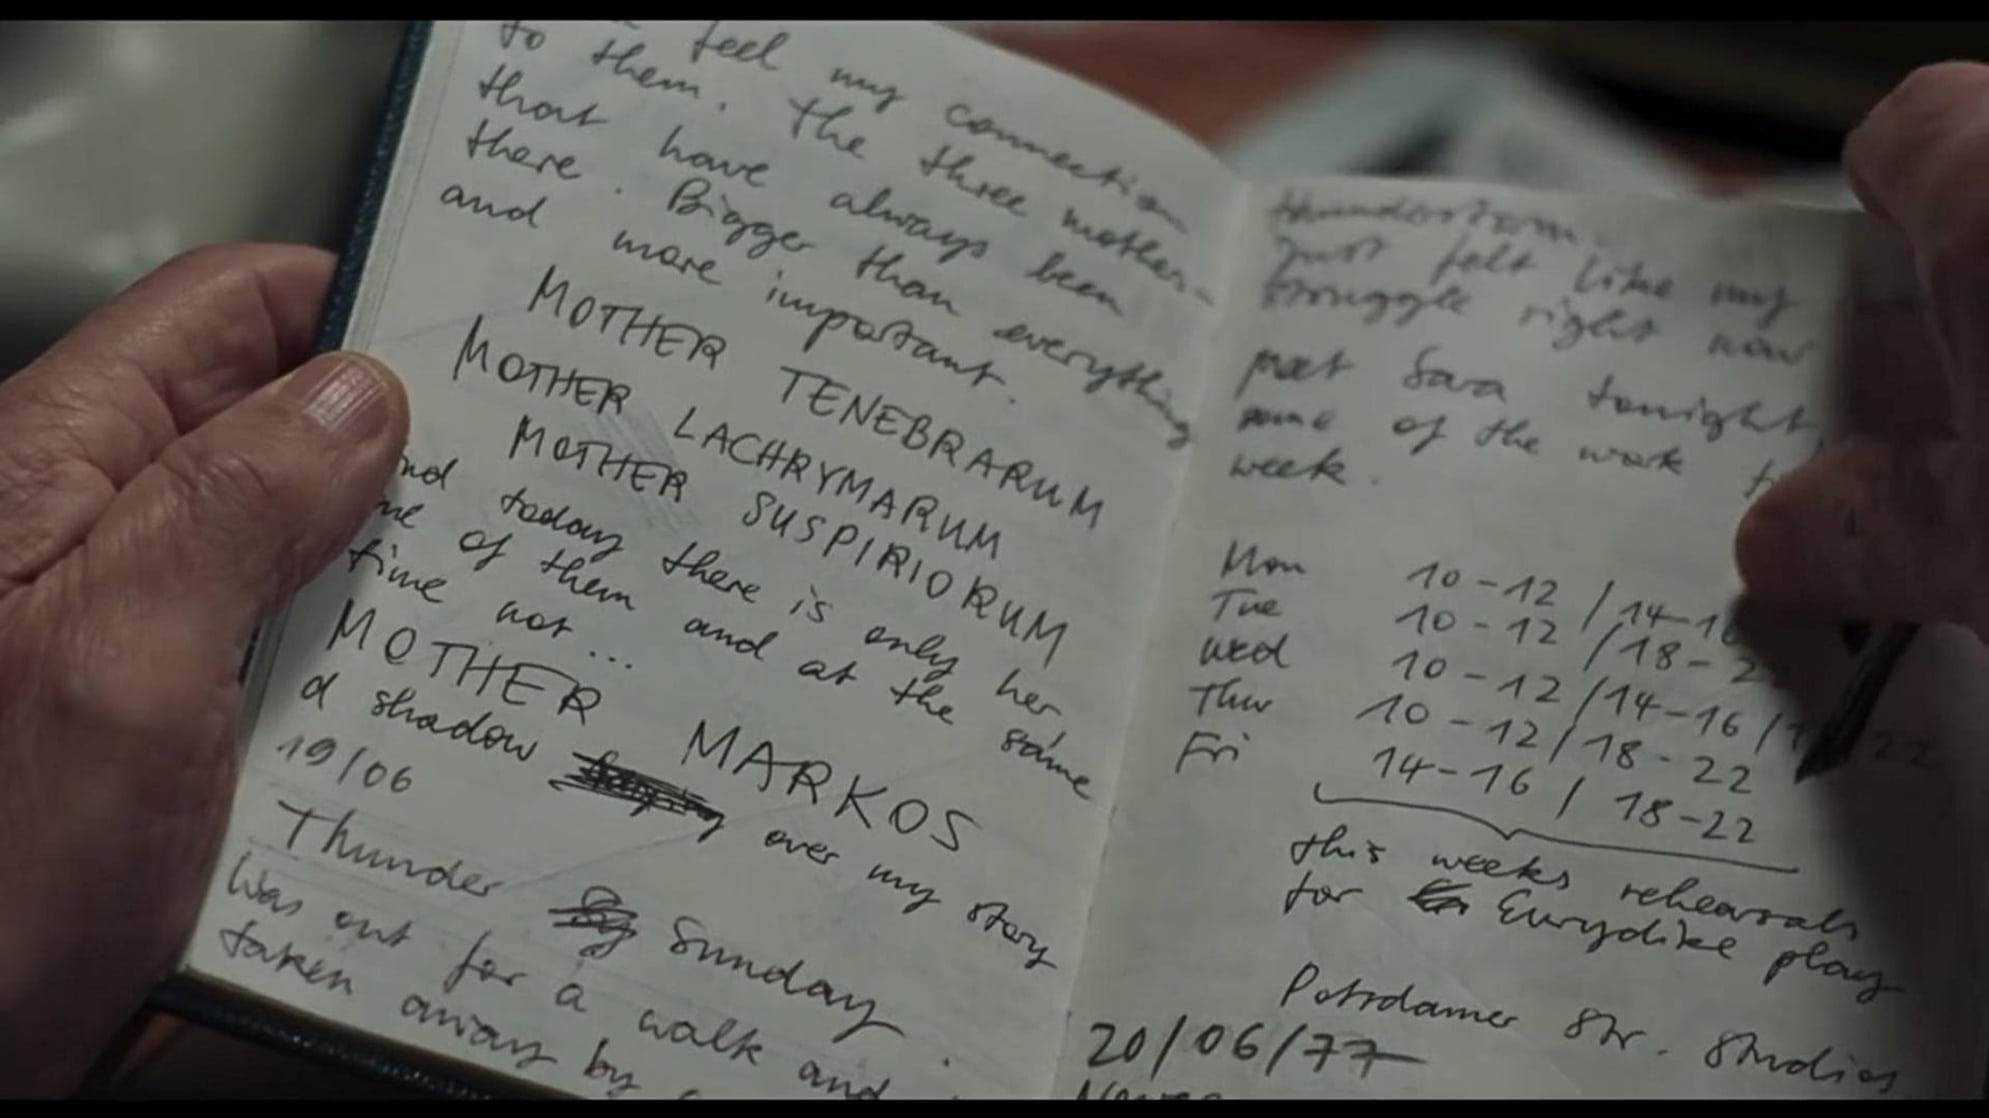 feel my connection
to them. The three mothers
that have always been
there. Bigger than everything
and more important.
MOTHER TENEBRARUM
MOTHER LACHRYMARUM
MOTHER SUSPIRIORUM
and today there is only her
time not...
me of them and at the same
MOTHER MARKOS
a shadow over my story
19/06
Thunder Sunday.
Was out for a walk and
taken away by
thunderstorm.
Just felt like my
struggle right now
meet Sara tonight,
some of the work
week.
Mon 10-12 / 14-16
Tue 10-12 / 18-2
Wed 10-12 / 14-16 / 22
Thur 10-12 / 18-22
Fri 14-16 / 18-22
this weeks rehearsals
for Eurydike play
Potsdamer Str. Studios
20/06/77